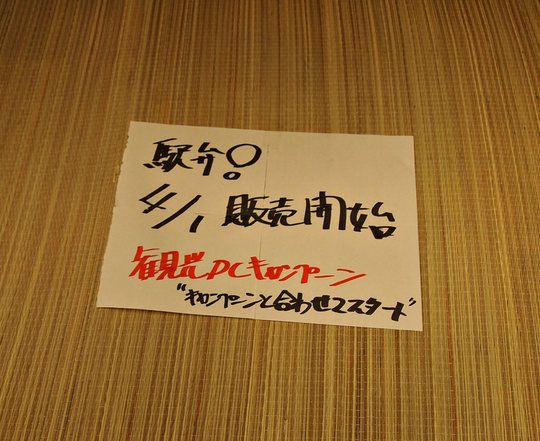 駅弁!
4/1 販売開始
観光DCキャンペーン
"キャンペーンと合わせてスタート"